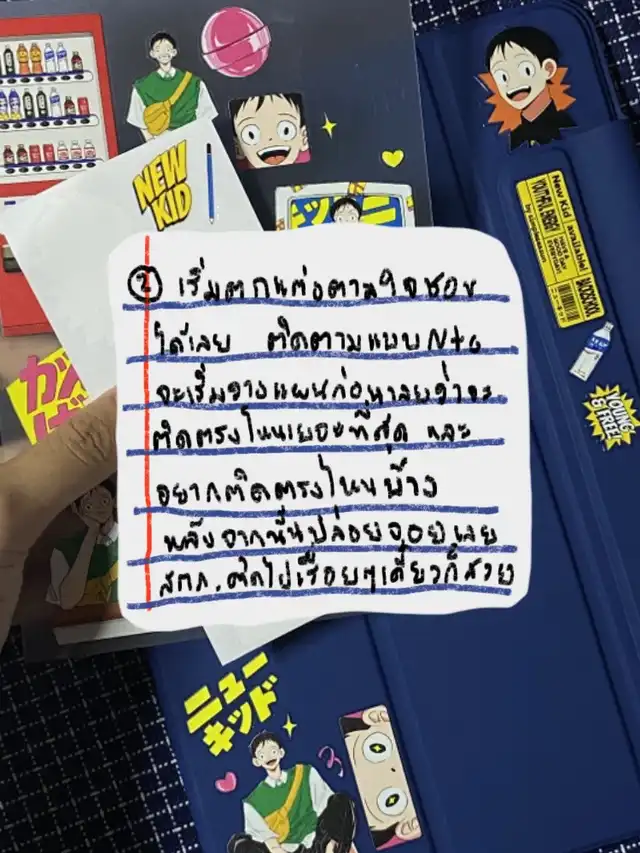 NEW
KID
New Kid available!
YOUTHFUL ENERGY
BACK2SCHOOL
② เริ่มตกแต่งตามใจชอบ
ได้เลย ติดตามแบบNtc
จะเริ่มวางแผนก่อนเลยว่าจะ
ติดตรงไหนเยอะที่สุด และ
อยากติดตรงไหนบ้าง
หลังจากนั้นปล่อยจอยเลย
สกก. ติดไปเรื่อยๆเดี๋ยวก็สวย
YOUNG
&
FREE
ニュー
キッド